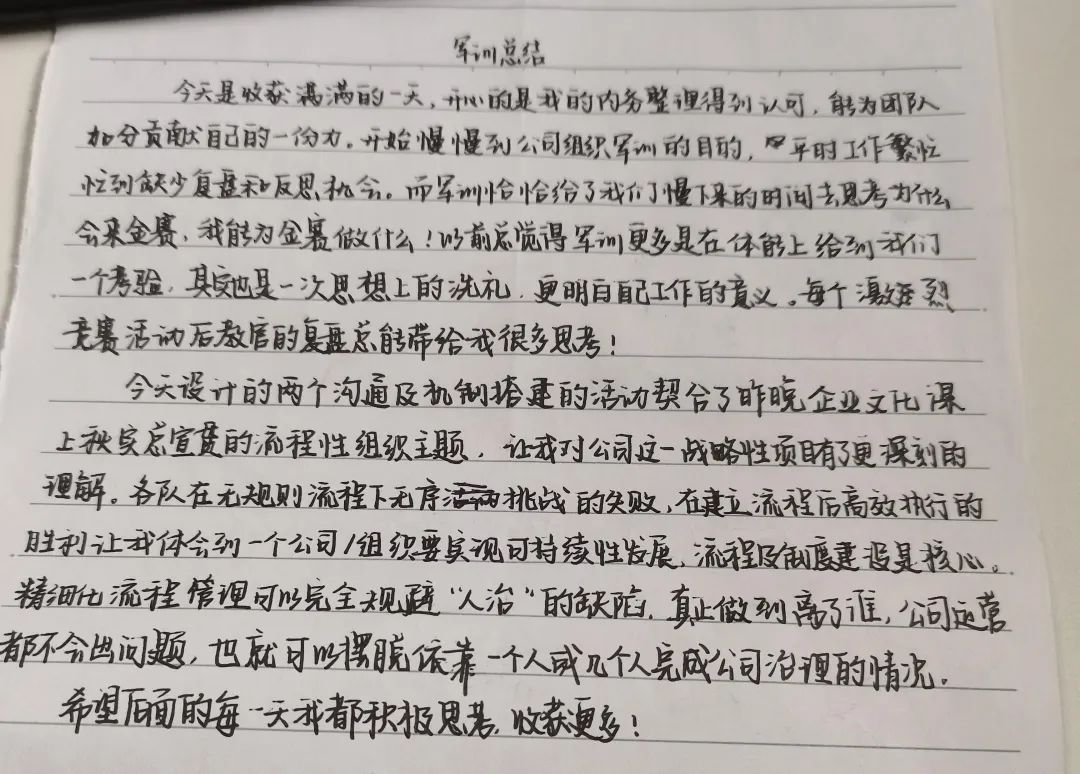 军训总结
今天是收获满满的一天，开心的是我的内务整理得到认可，能为团队
加分贡献自己的一份力。开始慢慢到公司组织军训的目的，平时工作繁忙
忙到缺少复盘和反思机会。而军训恰恰给了我们慢下来的时间去思考为什么
会来金赛，我能为金赛做什么！以前总觉得军训更多是在体能上给到我们
一个考验，其实也是一次思想上的洗礼，更明白自己工作的意义。每个激烈
竞赛活动后教官的复盘总能带给我很多思考！
今天设计的两个沟通及机制搭建的活动契合了昨晚企业文化课
上秋实总宣贯的流程性组织主题，让我对公司这一战略性项目有了更深刻的
理解。各队在无规则流程下无序挑战的失败，在建立流程后高效执行的
胜利让我体会到一个公司/组织要实现可持续性发展，流程及制度建设是核心。
精细化流程管理可以完全规避“人治”的缺陷，真正做到离了谁，公司运营
都不会出问题，也就可以摆脱依靠一个人或几个人完成公司治理的情况。
希望后面的每一天我都积极思考，收获更多！